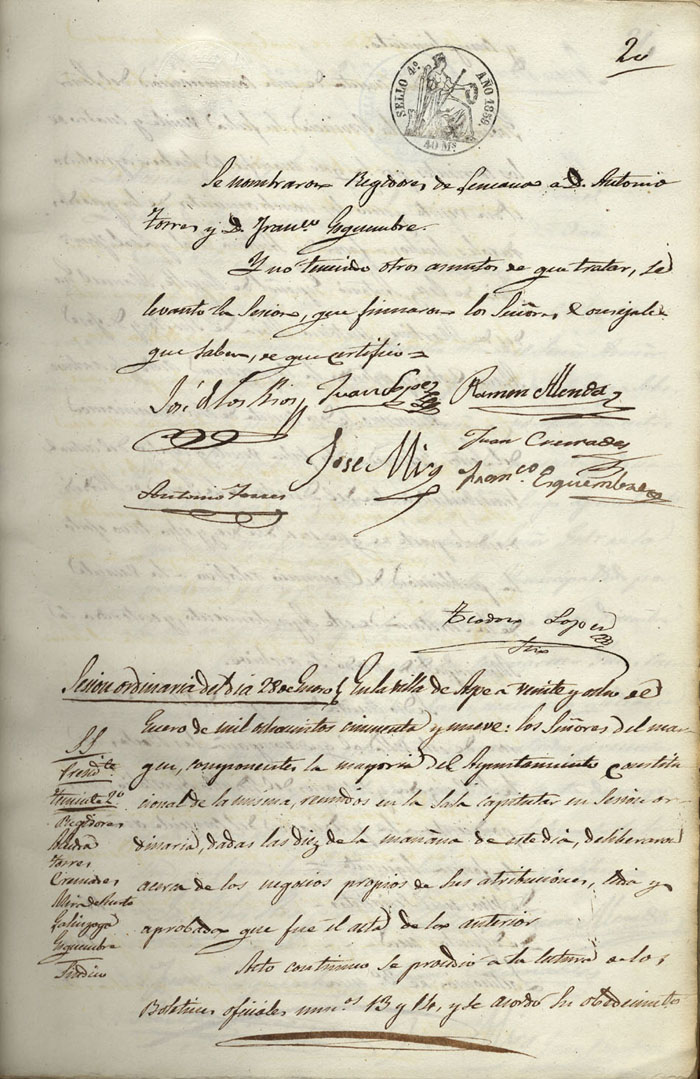 20
SELLO 4º AÑO 1859.
40 Ms.
Se nombraron Regidores de Semana a D. Antonio
Torres y D. Franco Esquembre.
Y no teniendo otros asuntos de que tratar, se
levanto la Sesion, que firmaron los Señores Concejales
que saben, de que certifico =
José de los Rios Juan Lopez Ramon Alenda
Jose Mira Juan Cremades
Antonio Torres Franco Esquembre
Teodoro Lopez
Srio
Sesion ordinaria del dia 28 de Enero En la villa de Aspe a veinte y ocho de
Enero de mil ochocientos cincuenta y nueve: los Señores del mar-
gen, componentes la mayoria del Ayuntamiento Constitu
cional de la misma, reunidos en la Sala capitular en Sesion or-
dinaria, dadas las diez de la mañana de este dia, deliberaron
acerca de los negocios propios de sus atribuciones, leida y
aprobada que fue el acta de la anterior
Acto continuo se procedio a la lectura de los
Boletines oficiales numos 13 y 14, y se acordó su obedecimiento
SS
Presidte
Teniente 2º
Regidores
Alenda
Torres
Cremades
Mira de
Esquembre
Sindico